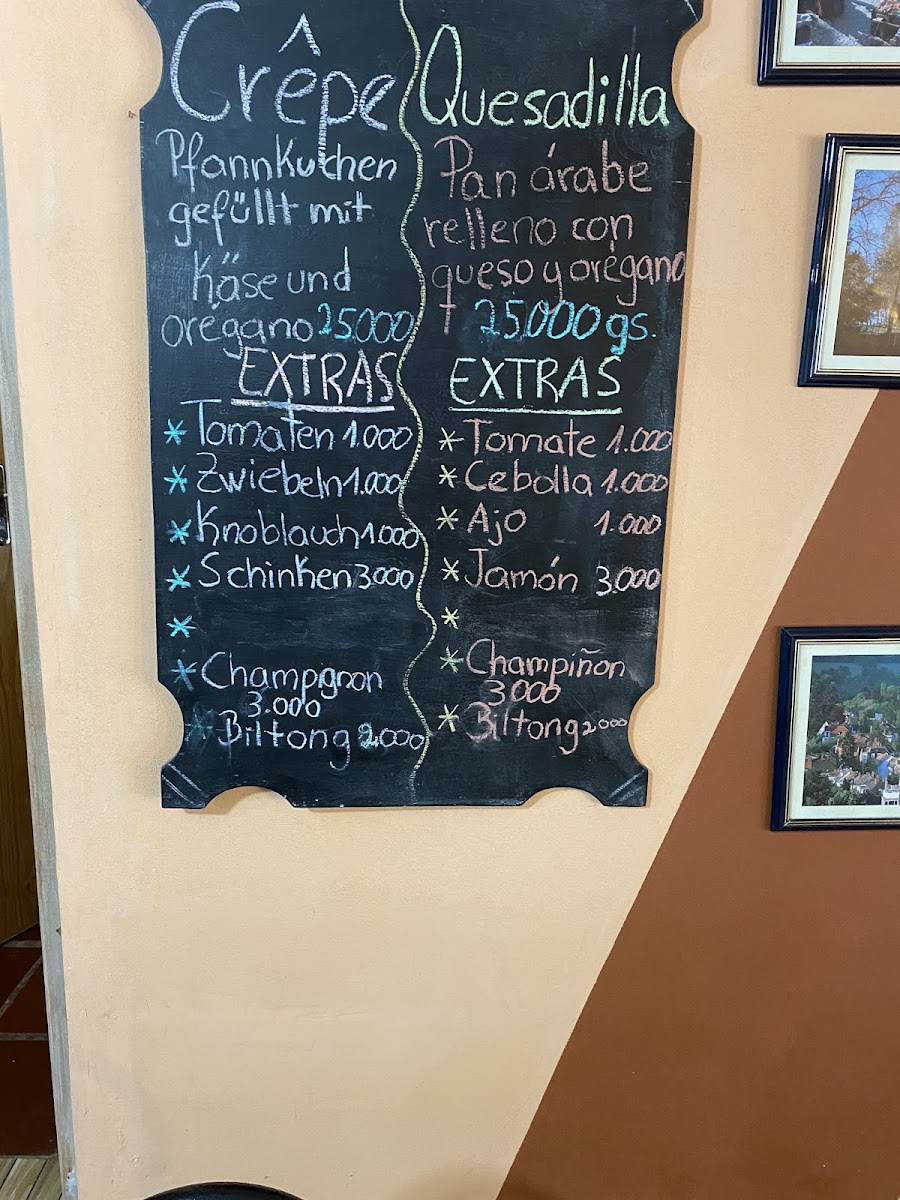 Crêpe
Pfannkuchen
gefüllt mit
Käse und
orégano 25.000
EXTRAS
* Tomaten 1.000
* Zwiebeln 1.000
* Knoblauch 1.000
* Schinken 3.000
*
* Champgnon
3.000
* Biltong 2.000
Quesadilla
Pan árabe
relleno con
queso y orégano
25.000 gs.
EXTRAS
* Tomate 1.000
* Cebolla 1.000
* Ajo 1.000
* Jamón 3.000
*
* Champiñon
3.000
* Biltong 2.000